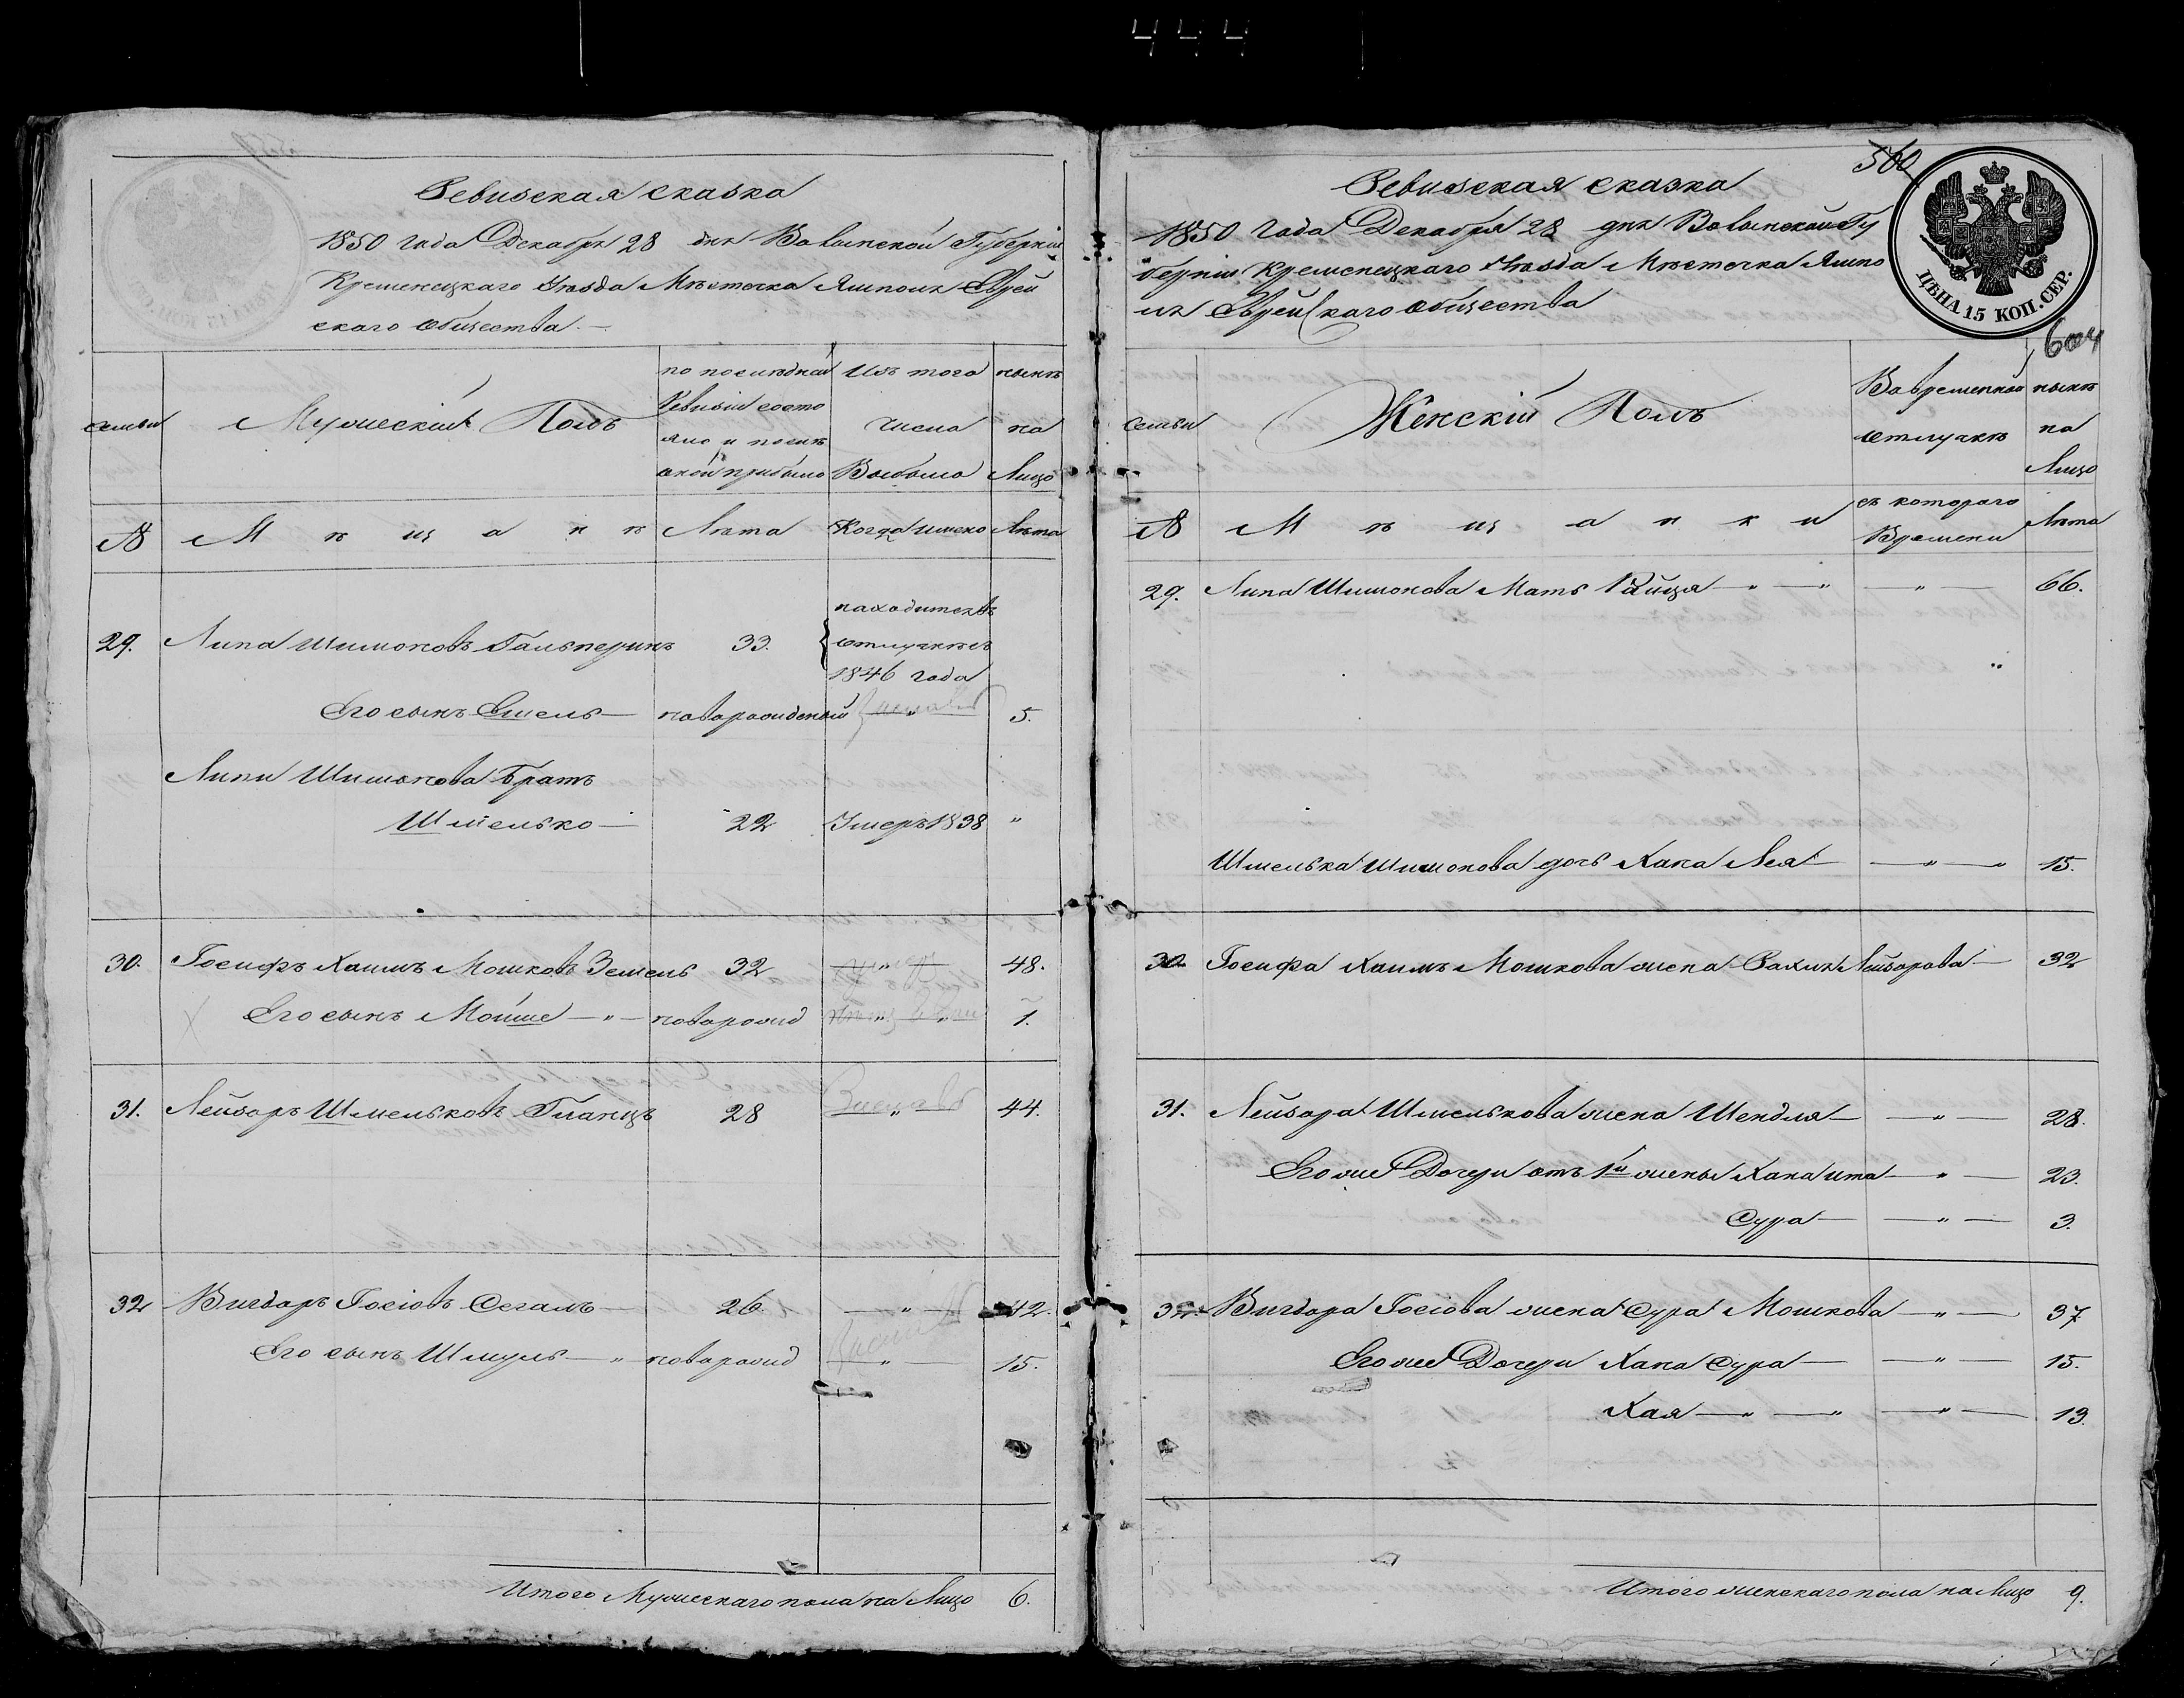 444
Ревизская сказка
1850 года Декабря 28 дня Волынской Губернии
Кременецкаго Уѣзда Мѣстечка Ямполя Еврей
скаго общества.
семьи
Мужескій Полъ
по послѣдней
Ревизіи состо
яло и послѣ
оной прибыло
Изъ того
числа
Выбыло
нынѣ
на
Лицо
№
Мѣщанѣ
Лѣта
Когда имено
Лѣта
29. Липа Шимоновъ Гальперинъ 33. находится въ отлучкѣ съ 1846 года
Его сынъ Ешель новорожденый 5.
Липи Шимонова Братъ
Шмелько 22 Умеръ 1838 "
30. Іосифъ Хаимъ Мошковъ Земель 32 " 48.
Его сынъ Мойше " новорожд " 1.
31. Лейзоръ Шмельковъ Гланцъ 28 " 44.
32 Вигдоръ Іосіовъ Сегалъ 26. " 42.
Его сынъ Шмуль " новорожд " 15.
Итого Мужескаго пола на Лицо 6.
560
Ревизская сказка
1850 года Декабря 28 дня Волынской Гу
берніи Кременецкаго Уѣзда Мѣстечка Ямпо
ля Еврейскаго общества
ЦѢНА 15 КОП. СЕР.
семьи
Женскій Полъ
Вовременной
отлучкѣ
нынѣ
на
Лицо
№
Мѣщанки
съ котораго
Времени
Лѣта
29. Липа Шимонова Мать Райця " " " 66.
Шмелька Шимонова дочь Хана Лея " " 15.
30 Іосифа Хаимъ Мошкова жена Рахиль Лейзорова 32
31. Лейзора Шмелькова жена Шендля " 28.
Его же Дочери отъ 1й жены Хана Ита " 23.
Сура " 3.
32. Вигдора Іосіова жена Сура Мошкова " 37
Его же Дочери Хана Сура " 15.
Хая " " " 13.
Итого женскаго пола на Лицо 9.